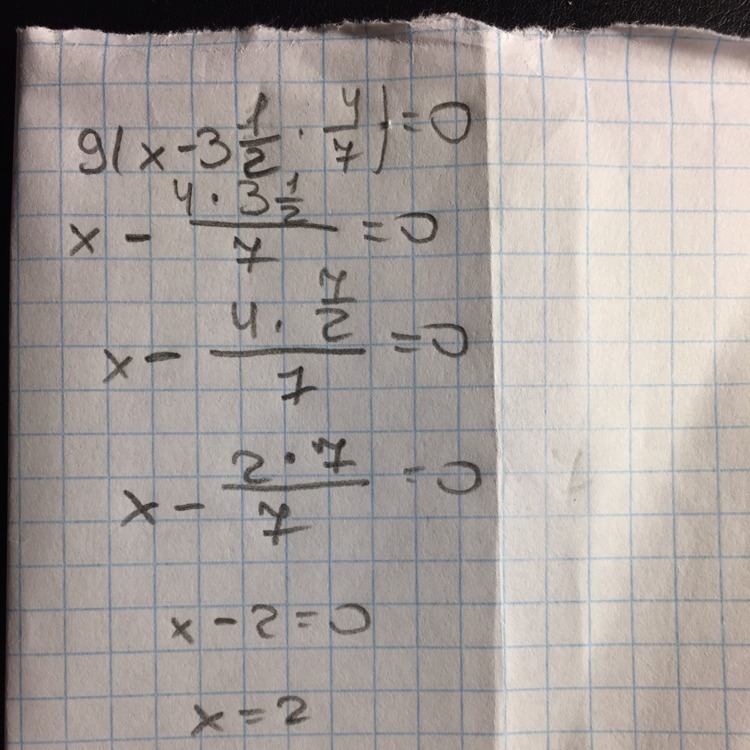 9(x - 3 1/2 · 4/7) = 0
x - (4 · 3 1/2)/7 = 0
x - (4 · 7/2)/7 = 0
x - (2 · 7)/7 = 0
x - 2 = 0
x = 2